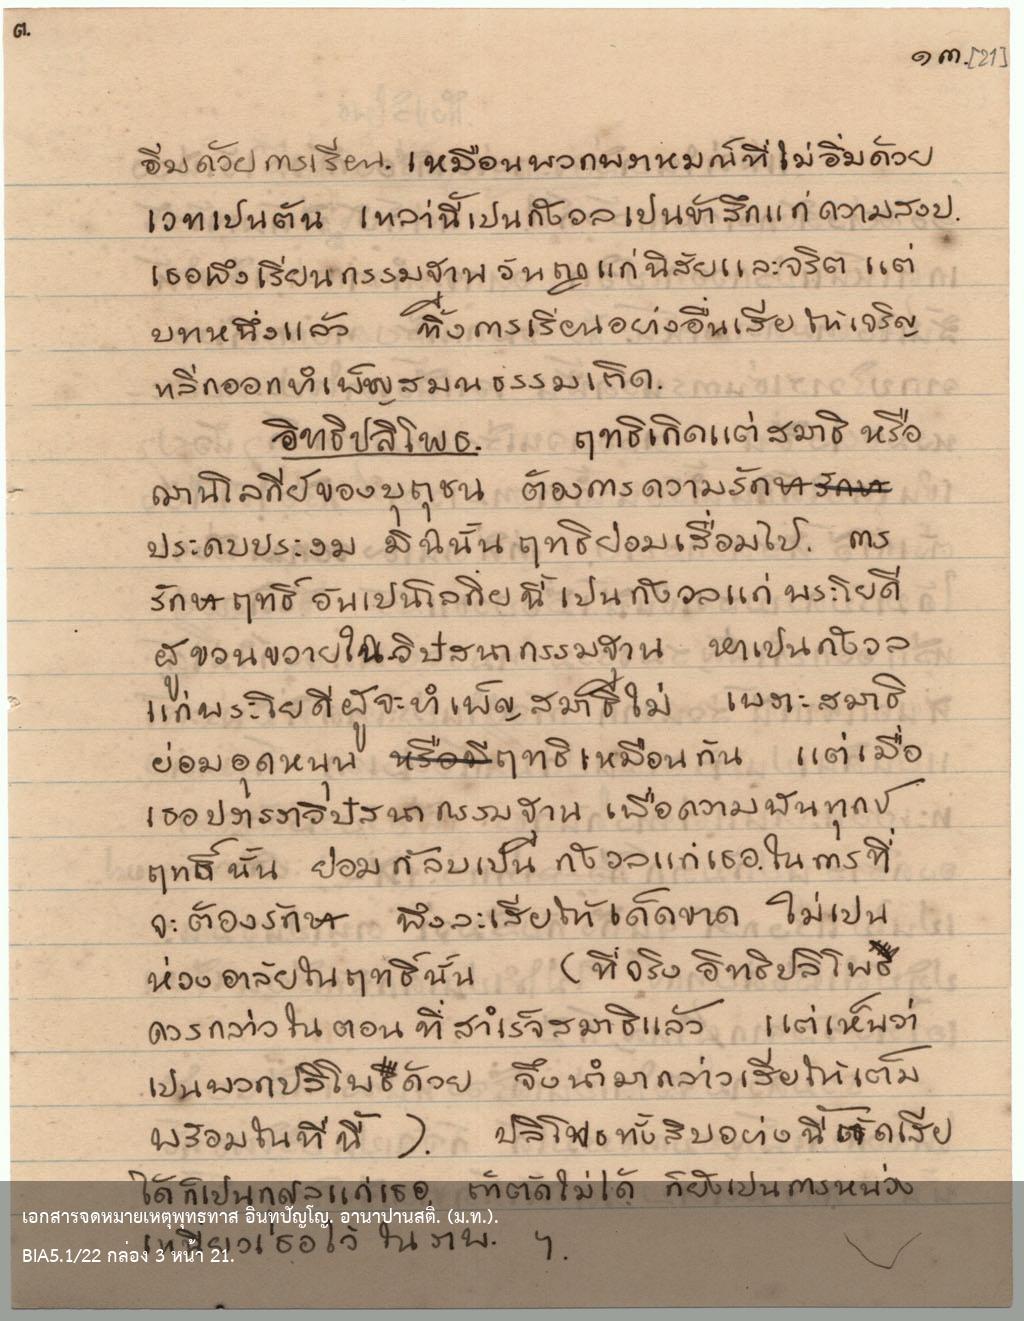 ต.
๑๓. [21]
อิ่มด้วยการเรียน. เหมือนพวกพราหมณ์ที่ไม่อิ่มด้วย
เวทเป็นต้น เหล่านี้เป็นกังวลเป็นข้าศึกแก่ความสงบ.
เธอพึงเรียนกรรมฐานอันถูกแก่นิสัยและจริต แต่
บทหนึ่งแล้ว ทิ้งการเรียนอย่างอื่นเสีย ให้เจริญ
หลีกออกทำเพ็ญสมณธรรมเถิด.
อิทธิปลิโพธ. ฤทธิเกิดแต่สมาธิ หรือ
ฌานโลกีย์ของบุถุชน ต้องการความรักษา รักษา
ประคบประงม มิฉนั้นฤทธิย่อมเสื่อมไป. การ
รักษาฤทธิ์อันเป็นโลกิยนี้ เป็นกังวลแก่พระโยคี
ผู้ขวนขวายในวิปัสนากรรมฐาน หาเป็นกังวล
แก่พระโยคีผู้จะทำเพ็ญสมาธิไม่ เพราะสมาธิ
ย่อมอุดหนุน หรือมีฤทธิเหมือนกัน แต่เมื่อ
เธอปรารภวิปัสนากรรมฐาน เพื่อความพ้นทุกข์
ฤทธิ์นั้น ย่อมกลับเป็นกังวลแก่เธอ.ในการที่
จะต้องรักษา พึงละเสียให้เด็ดขาด ไม่เป็น
ห่วงอาลัยในฤทธิ์นั้น (ที่จริง อิทธิปลิโพธ
ควรกล่าวในตอนที่สำเร็จสมาธิแล้ว แต่เห็นว่า
เป็นพวกปลิโพธด้วย จึงนำมากล่าวเสียให้เต็ม
พร้อมในที่นี้ ). ปลิโพธทั้งสิบอย่างนี้ ตัดเสีย
ได้ก็เป็นกุศลแก่เธอ. ถ้าตัดไม่ได้ ก็ยังเป็นการหน่วง
เหนี่ยวเธอไว้ ในภพ. ฯ.
เอกสารจดหมายเหตุพุทธทาส อินทปัญโญ. อานาปานสติ. (ม.ท.).
BIA5.1/22 กล่อง 3 หน้า 21.